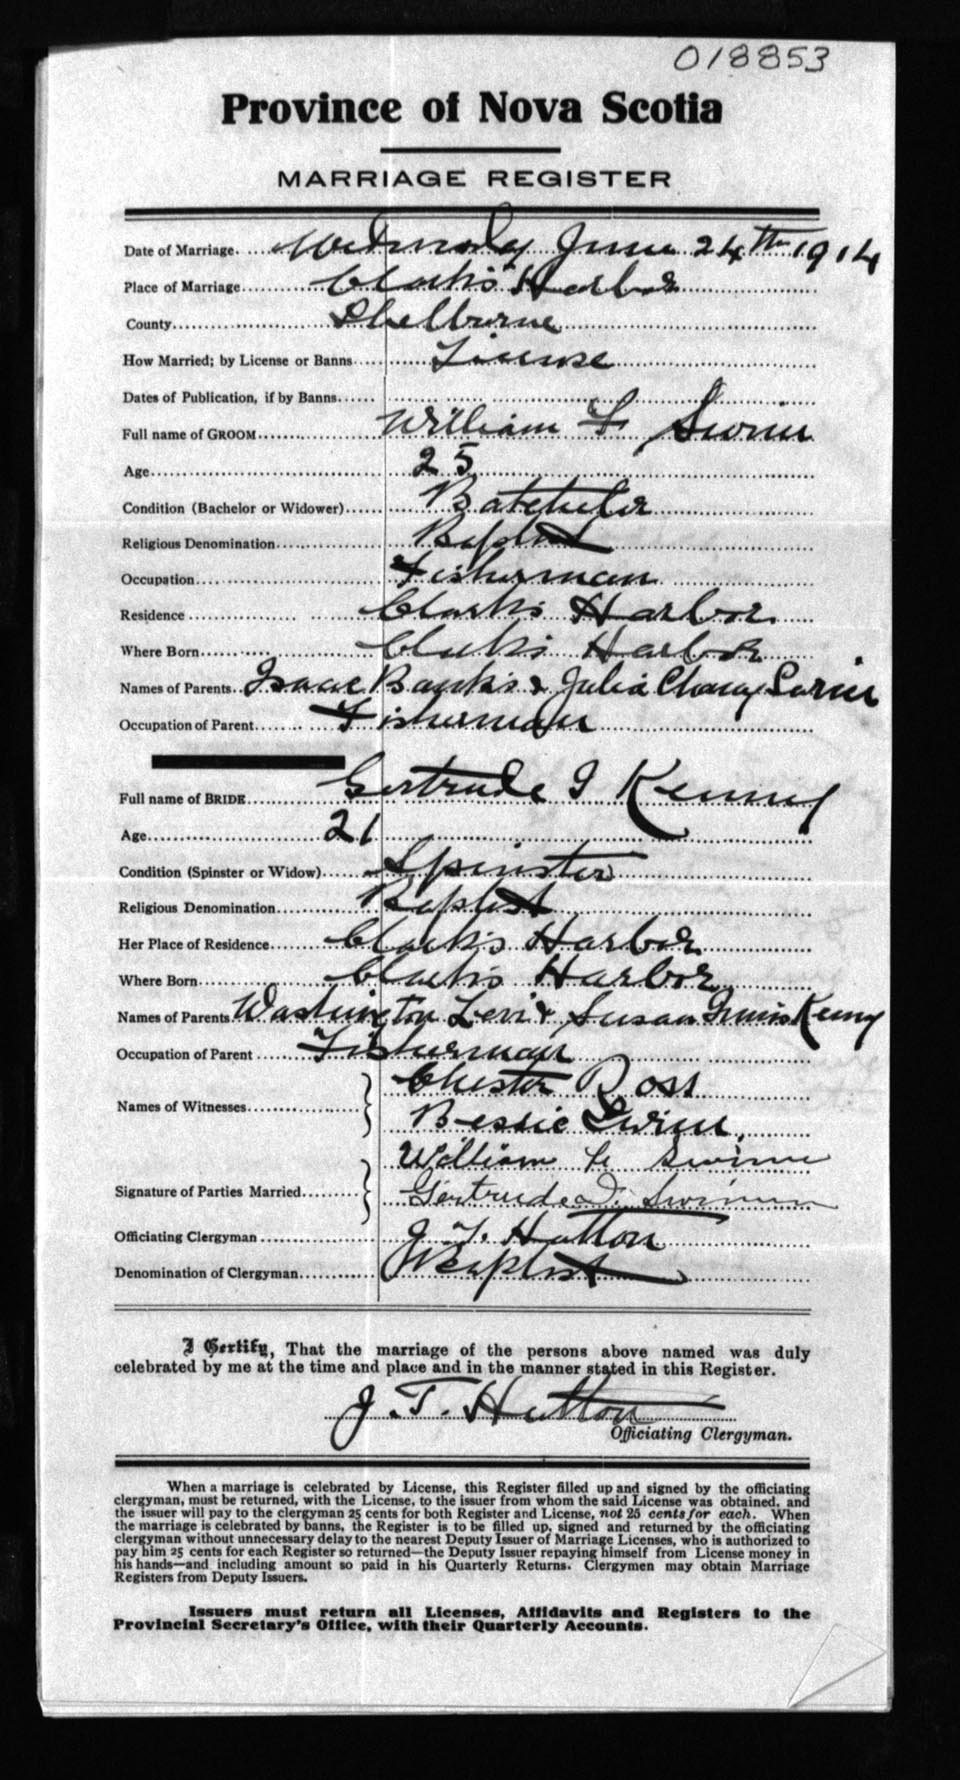 018853
Province of Nova Scotia
MARRIAGE REGISTER
Date of Marriage. Wednesday June 24th 1914
Place of Marriage Clarks Harbor
County Shelburne
How Married; by License or Banns License
Dates of Publication, if by Banns
Full name of GROOM William F Swim
Age 25
Condition (Bachelor or Widower) Batcheler
Religious Denomination Baptist
Occupation Fisherman
Residence Clarks Harbor
Where Born Clarks Harbor
Names of Parents Isaac Banks & Julia Swim
Occupation of Parent Fisherman
Full name of BRIDE Gertrude I Kenney
Age 21
Condition (Spinster or Widow) Spinster
Religious Denomination Baptist
Her Place of Residence Clark's Harbor
Where Born Clark's Harbor
Names of Parents Washington Levi & Susan Kenny
Occupation of Parent Fisherman
Names of Witnesses Chester Ross
Bessie Swim.
Signature of Parties Married William Swim
Gertrude I. Swim
Officiating Clergyman J. T. Hutton
Denomination of Clergyman Baptist
I Certify, That the marriage of the persons above named was duly
celebrated by me at the time and place and in the manner stated in this Register.
J. T. Hutton
Officiating Clergyman.
When a marriage is celebrated by License, this Register filled up and signed by the officiating
clergyman, must be returned, with the License, to the issuer from whom the said License was obtained, and
the issuer will pay to the clergyman 25 cents for both Register and License, not 25 cents for each. When
the marriage is celebrated by banns, the Register is to be filled up, signed and returned by the officiating
clergyman without unnecessary delay to the nearest Deputy Issuer of Marriage Licenses, who is authorized to
pay him 25 cents for each Register so returned—the Deputy Issuer repaying himself from License money in
his hands—and including amount so paid in his Quarterly Returns. Clergymen may obtain Marriage
Registers from Deputy Issuers.
Issuers must return all Licenses, Affidavits and Registers to the
Provincial Secretary's Office, with their Quarterly Accounts.